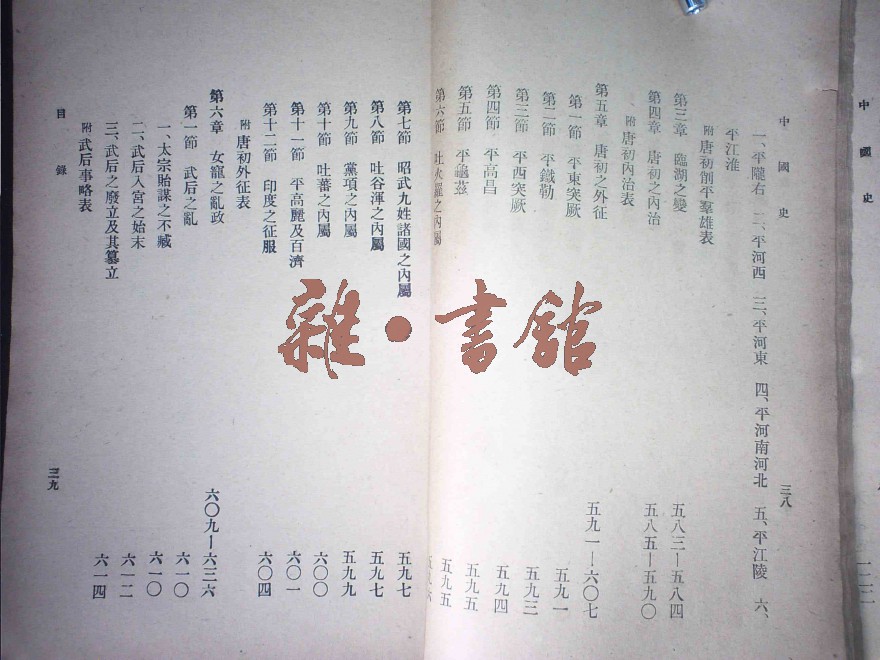 中國史
三八
一、平隴右 二、平河西 三、平河東 四、平河南河北 五、平江陵 六、
平江淮
附 唐初削平羣雄表
第三章 臨湖之變 五八三—五八四
第四章 唐初之內治 五八五—五九〇
附 唐初內治表
第五章 唐初之外征 五九一—六〇七
第一節 平東突厥 五九一
第二節 平鐵勒 五九三
第三節 平西突厥 五九四
第四節 平高昌 五九五
第五節 平龜茲 五九五
第六節 吐火羅之內屬
第七節 昭武九姓諸國之內屬 五九七
第八節 吐谷渾之內屬 五九七
第九節 黨項之內屬 五九九
第十節 吐蕃之內屬 六〇〇
第十一節 平高麗及百濟 六〇一
第十二節 印度之征服 六〇四
附 唐初外征表
第六章 女寵之亂政 六〇九—六三六
第一節 武后之亂 六一〇
一、太宗貽謀之不臧 六一〇
二、武后入宮之始末 六一二
三、武后之廢立及其篡立 六一四
附 武后事略表
目錄
三九
雜·書館
中國史